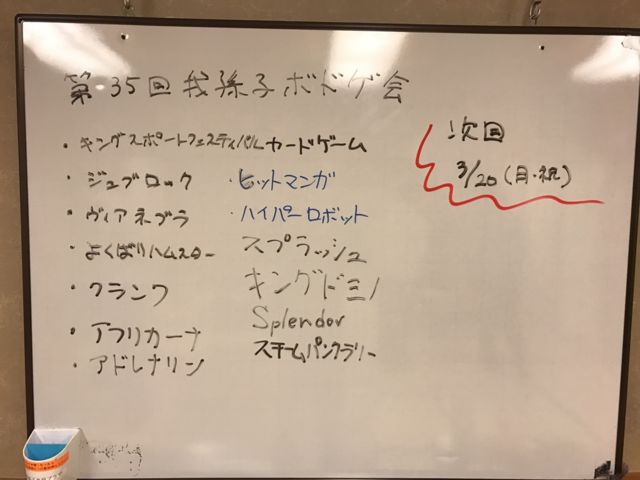 第35回我孫子ボドゲ会
・キングスポートフェスティバルカードゲーム
・ジュブロック
・ヴィアネブラ
・よくばりハムスター
・クランク
・アフリカーナ
・アドレナリン
・ヒットマンガ
・ハイパーロボット
スプラッシュ
キングドミノ
Splendor
スチームパンクラリー
次回
3/20(月・祝)